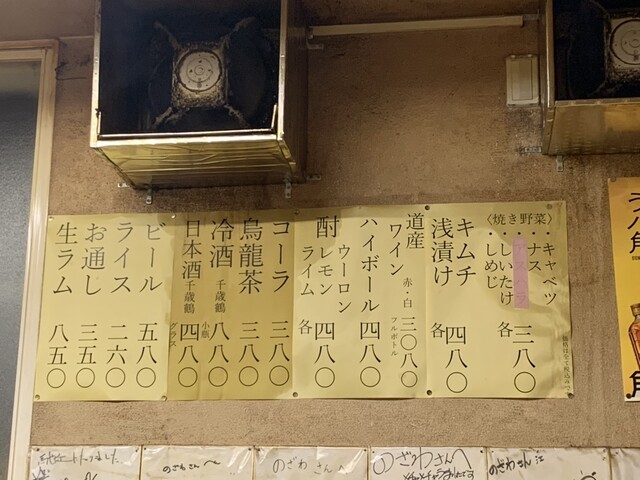 〈焼き野菜〉
・キャベツ
・ナス
・しいたけ
・しめじ
各 三八〇
キムチ
浅漬け
各 四八〇
道産ワイン 赤・白 フルボトル 三〇八〇
ハイボール 四八〇
酎
ウーロン
レモン
ライム
各 四八〇
コーラ 三八〇
烏龍茶 三八〇
冷酒 千歳鶴 小瓶 八八〇
日本酒 千歳鶴 グラス 四八〇
ビール 五八〇
ライス 二六〇
お通し 三五〇
生ラム 八五〇
角
のざわさんへ
のざわさんへ
のざわさんへ
のざわさん江